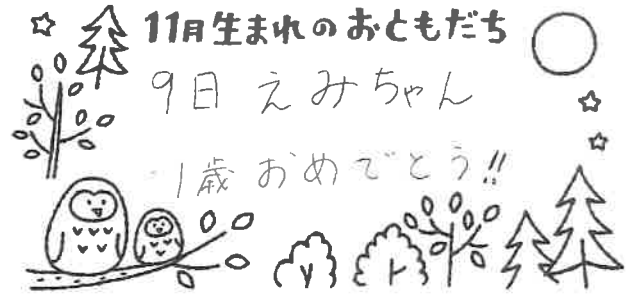 11月生まれのおともだち
9日 えみちゃん
1歳おめでとう!!